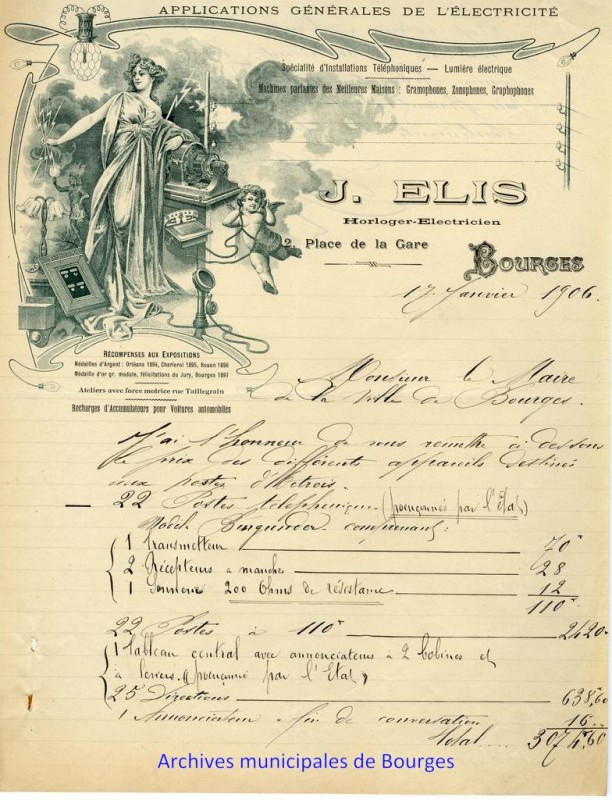 APPLICATIONS GÉNÉRALES DE L'ÉLECTRICITÉ
Spécialité d'Installations Téléphoniques — Lumière électrique
Machines parlantes des Meilleures Maisons : Gramophones, Zonophones, Graphophones
J. ELIS
Horloger-Electricien
2, Place de la Gare
BOURGES
17 Janvier 1906.
RÉCOMPENSES AUX EXPOSITIONS
Médailles d'Argent : Orléans 1894, Charleroi 1895, Rouen 1896
Médaille d'or gr. module, félicitations du Jury, Bourges 1897
Ateliers avec force motrice rue Taillegrain
Recharges d'Accumulateurs pour Voitures automobiles
Monsieur le Maire
de la Ville de Bourges.
J'ai l'honneur de vous remettre ci dessous
le prix des différents appareils destinés
aux postes d'Octrois.
22 Postes téléphonique (poinçonnés par l'Etat)
Modèle comprenant :
1 transmetteur 70
2 Récepteurs a manche 28
1 Sonnerie 200 Ohms de résistance 12
110
22 Postes à 110 2420
1 Tableau central avec annonciateurs à 2 bobines et
à leviers (poinçonné par l'Etat)
25 Directions 638,60
1 Annonciateur fin de conversation 16
Total 3074,60
Archives municipales de Bourges